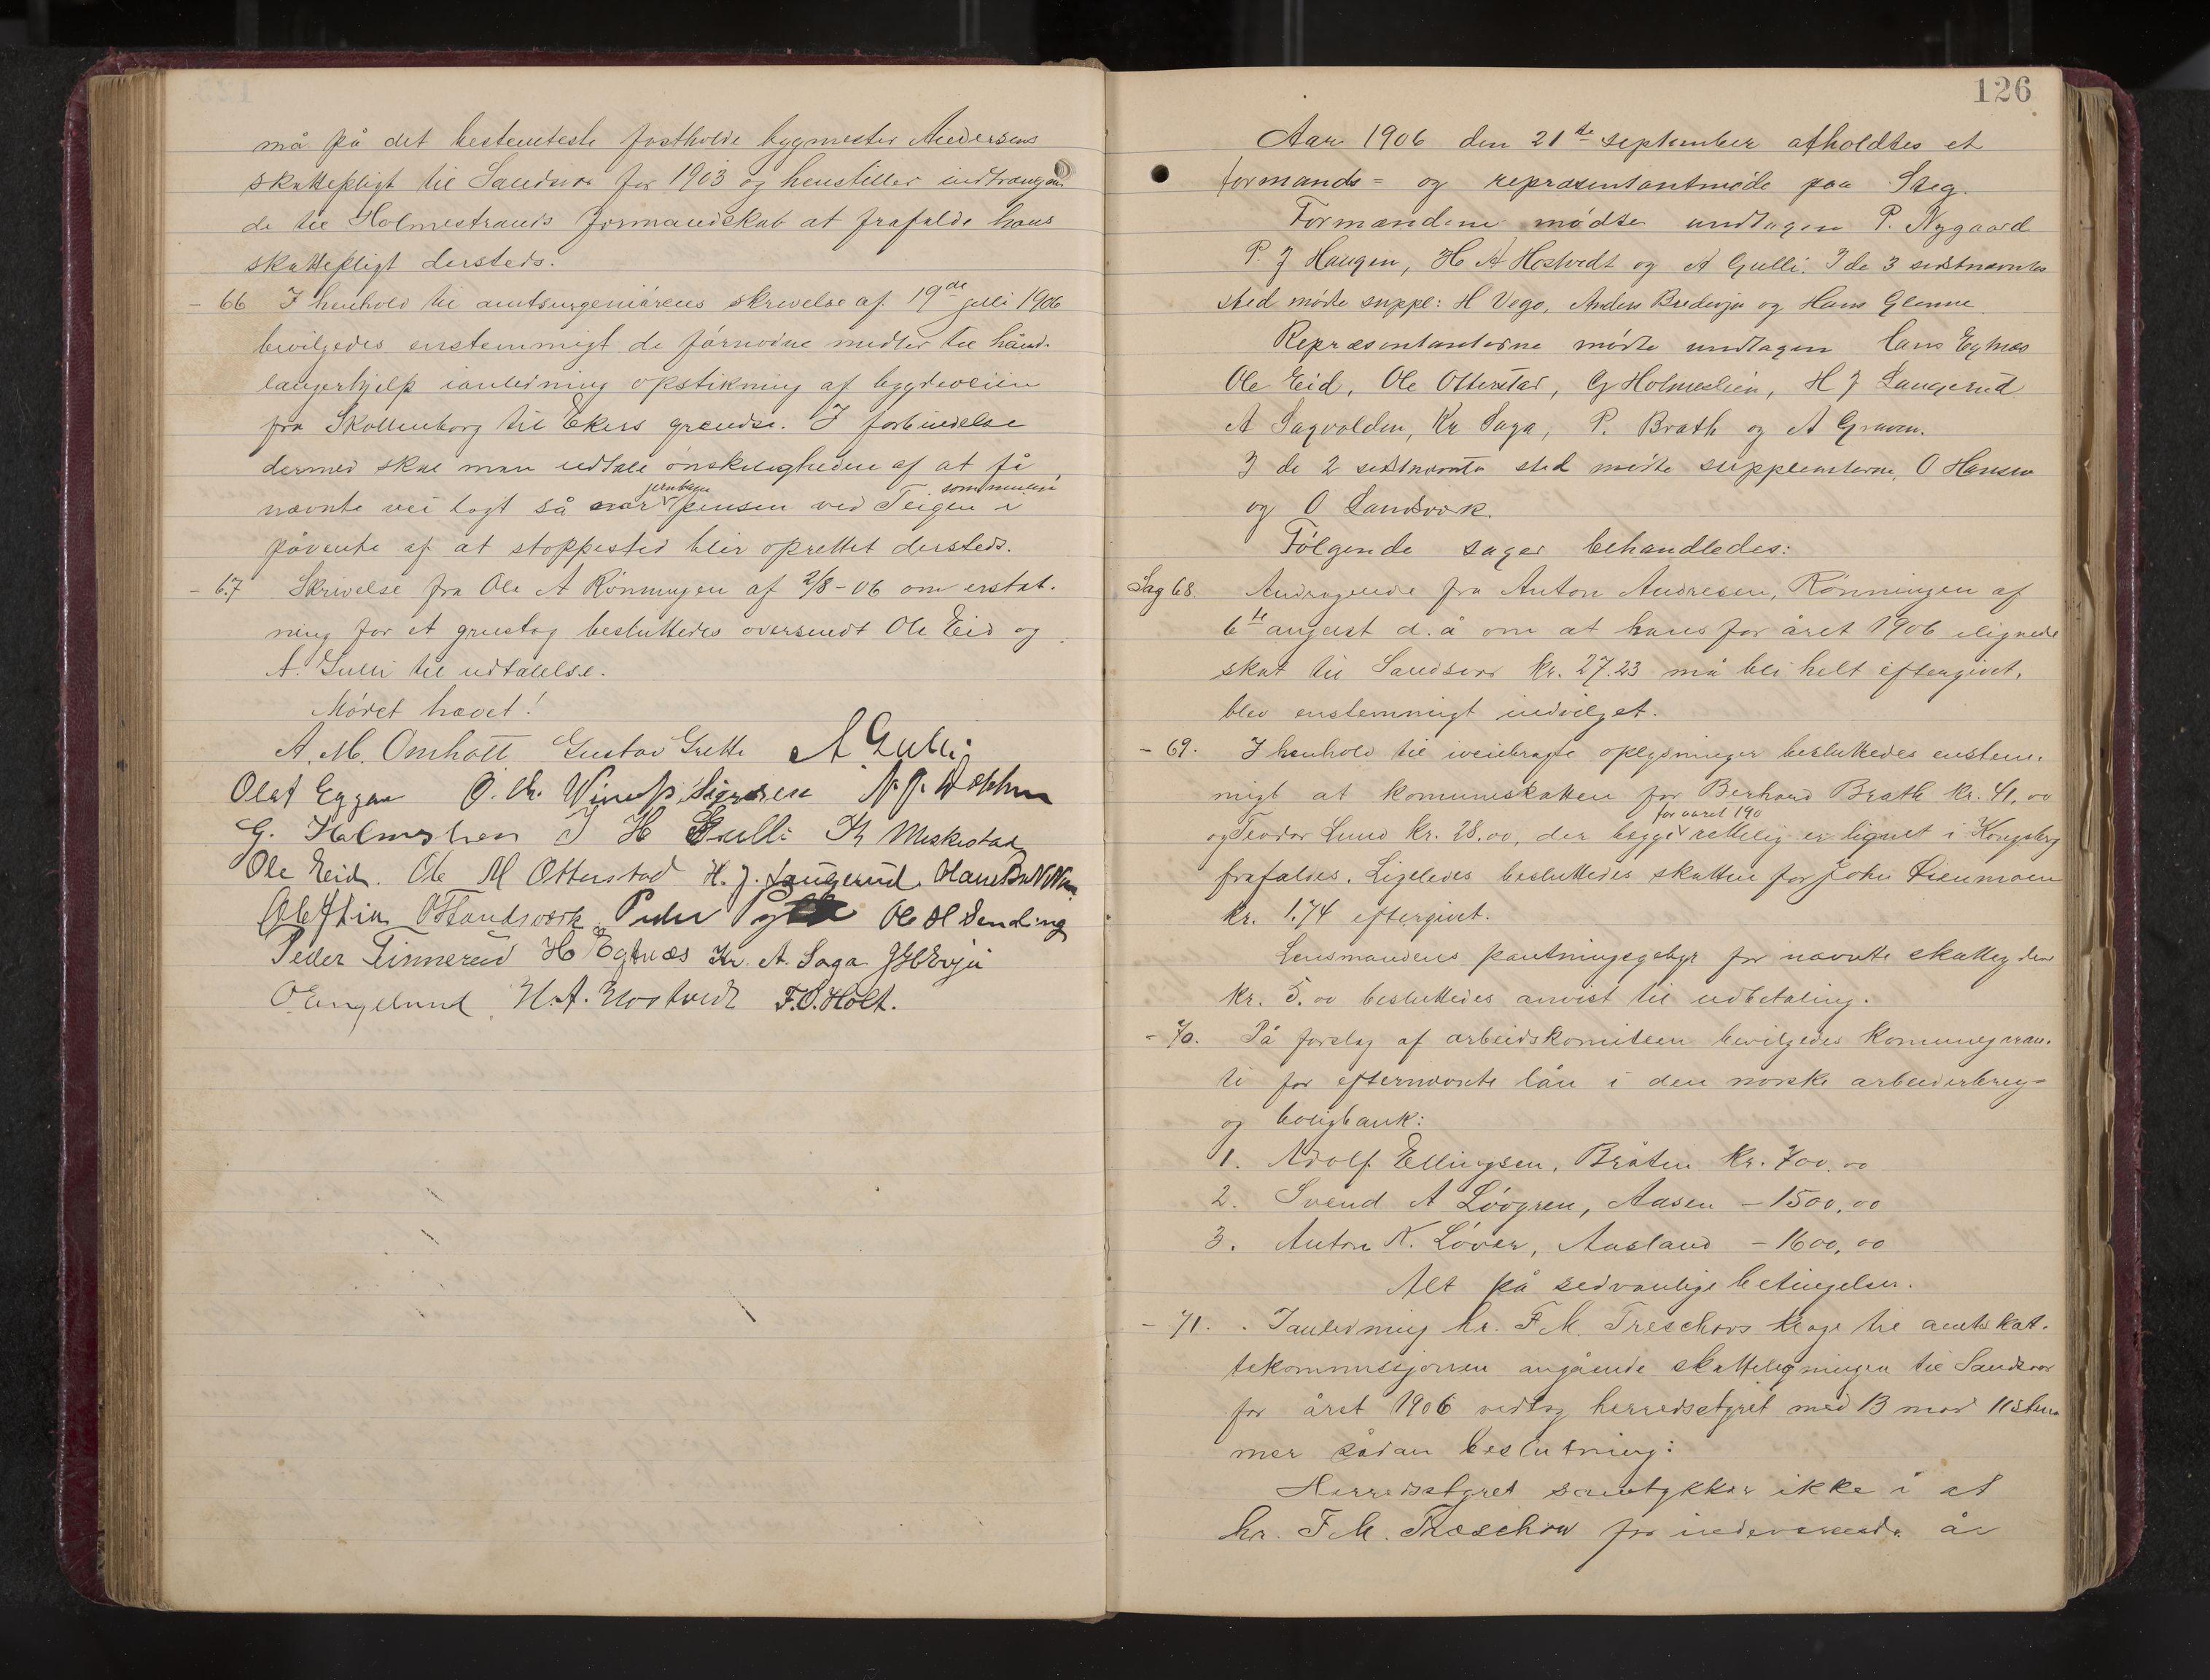 må på det bestemteste fastholde bygmester Andersens
skattepligt til Sandsvær for 1903 og henstiller indtrængen
de til Holmestrands formandskab at frafalde hans
skattepligt dersteds.
- 66 I henhold til amtsingeniørens skrivelse af 19de juli 1906
bevilgedes enstemmigt de fornødne midler til hånd-
langerhjelp ianledning opstikning af bygdeveien
fra Skollenborg til Ekers grændse. I forbindelse
dermed skal man udtale ønskeligheden af at få
jernbane som muligt
nævnte vei lagt så nær pensen ved Teigen i
påvente af at stoppested blir oprettet dersteds.
- 67 Skrivelse fra Ole A Rønningen af 2/8-06 om erstat-
ning for et grustag besluttedes oversendt Ole Eid og
A. Gulli til udtalelse.
Mødet hævet!
A. M. Omholt Gustav Grette A Gulli
Olaf Eggar O. Chr. Winess Sigursen
G. Holmslien I H Gulli Kr Miskestad
Ole Eid. Ole M Otterstad H. J. Langerud
O Sandsværk Peder Ole H Sending
Peder Tinnerud H Egtnæs Kr. A. Saga J H Evju
O Engelund H. A. Hostvedt F. O. Holt.
126
Aar 1906 den 21de september afholdtes et
formands= og repræsentantmøde paa Steg.
Formændene mødte undtagen P. Nygaard
P. J Haugen, H A Hostvedt og A Gulli. I de 3 sidstnævntes
sted mødte suppl: H Vego, Anders Bredevju og Hans Glenne.
Repræsentanterne mødte undtagen Hans Egtnæs
Ole Eid, Ole Otterstad, G Holmslien, H J Langerud
A Sagvolden, Kr Saga, P. Brath og A Graven.
I de 2 sidstnævnte sted mødte suppleanterne, O Hansen
og O Sandsværk.
Følgende sager behandledes:
Sag 68. Andragende fra Anton Andresen, Rønningen af
6te august d. å om at hans for året 1906 ilignede
skat til Sandsvær kr. 27.23 må bli helt eftergivet,
blev enstemmigt indvilget.
- 69. I henhold til iveiebragte oplysninger besluttedes enstem-
migt at kommuneskatten for Berhard Brath kr. 41,00
for aaret 190
og Teodor Lund kr. 28.00, der begge rettelig er lignet i Kongsberg
frafaldes. Ligeledes besluttedes skatten for John Lienmoen
kr. 1.74 eftergivet.
Lensmandens pantningsgebyr for nævnte skatteydere
kr. 5.00 besluttedes anvist til udbetaling.
- 70. På forslag af arbeidskomiteen bevilgedes kommunegaran-
ti for efternævnte lån i den norske arbeiderbrug-
og boligbank:
1. Adolf Ellingsen, Bråten kr. 700.00
2. Svend A Løvgren, Aasen - 1500,00
3. Anton K. Løver, Aasland - 1600,00
Alt på sedvanlige betingelser.
- 71. Ianledning hr. F M. Treschows klage til amtskat-
tekommissjonen angående skatteligningen til Sandsvær
for året 1906 vedtog herredsstyret med 13 mod 11 stem
mer sådan beslutning:
Herredsstyret samtykker ikke i at
hr. F M. Treschow for indeværende år